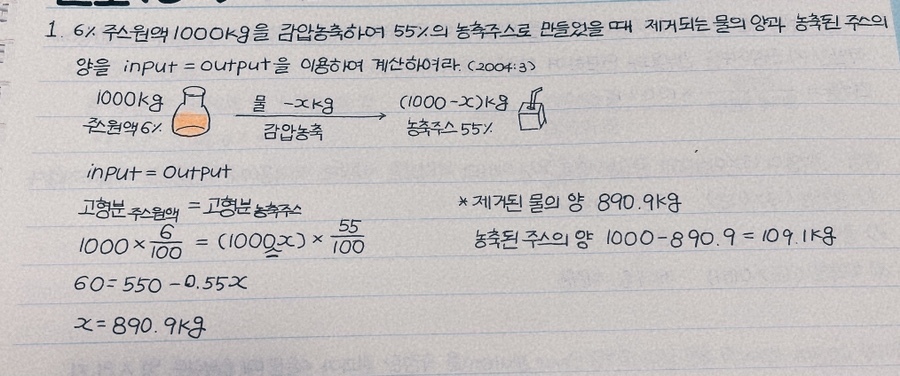 1. 6% 주스원액 1000kg을 감압농축하여 55%의 농축주스로 만들었을 때 제거되는 물의 양과 농축된 주스의
양을 input = output을 이용하여 계산하여라. (2004:3)
1000kg 물 -xkg (1000-x)kg
주스원액 6% 감압농축 농축주스 55%
input = output
고형분 주스원액 = 고형분 농축주스
1000 × 6/100 = (1000-x) × 55/100
60 = 550 - 0.55x
x = 890.9kg
* 제거된 물의 양 890.9kg
농축된 주스의 양 1000 - 890.9 = 109.1kg